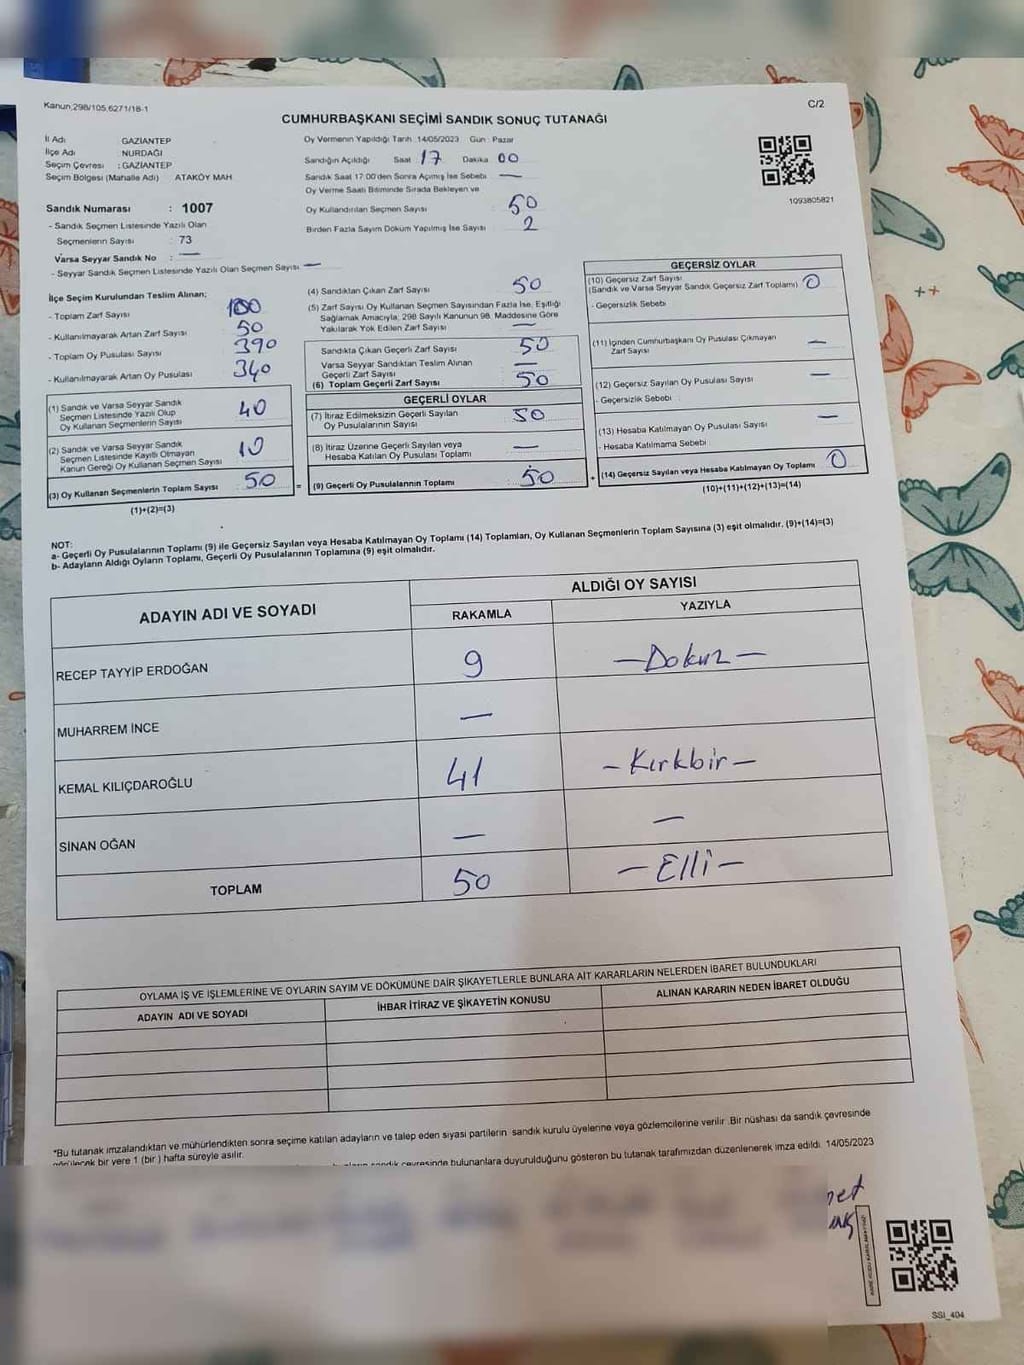 Kanun,298/105,6271/18-1
C/2
CUMHURBAŞKANI SEÇİMİ SANDIK SONUÇ TUTANAĞI
İl Adı GAZİANTEP
İlçe Adı NURDAĞI
Seçim Çevresi : GAZİANTEP
Seçim Bölgesi (Mahalle Adı) ATAKÖY MAH.
Oy Vermenin Yapıldığı Tarih 14/05/2023 Gün : Pazar
Sandığın Açıldığı Saat 17 Dakika 00
Sandık Saat 17:00'den Sonra Açılmış İse Sebebi —
Oy Verme Saati Bitiminde Sırada Bekleyen ve
Oy Kullandırılan Seçmen Sayısı : 50
Birden Fazla Sayım Döküm Yapılmış İse Sayısı 2
1093805821
Sandık Numarası : 1007
- Sandık Seçmen Listesinde Yazılı Olan
Seçmenlerin Sayısı : 73
Varsa Seyyar Sandık No : —
- Seyyar Sandık Seçmen Listesinde Yazılı Olan Seçmen Sayısı —
İlçe Seçim Kurulundan Teslim Alınan;
- Toplam Zarf Sayısı 100
- Kullanılmayarak Artan Zarf Sayısı 50
- Toplam Oy Pusulası Sayısı 390
- Kullanılmayarak Artan Oy Pusulası 340
(1) Sandık ve Varsa Seyyar Sandık
Seçmen Listesinde Yazılı Olup
Oy Kullanan Seçmenlerin Sayısı 40
(2) Sandık ve Varsa Seyyar Sandık
Seçmen Listesinde Kayıtlı Olmayan
Kanun Gereği Oy Kullanan Seçmen Sayısı 10
(3) Oy Kullanan Seçmenlerin Toplam Sayısı 50
(1)+(2)=(3)
=
(4) Sandıktan Çıkan Zarf Sayısı 50
(5) Zarf Sayısı Oy Kullanan Seçmen Sayısından Fazla İse, Eşitliği
Sağlamak Amacıyla, 298 Sayılı Kanunun 98. Maddesine Göre
Yakılarak Yok Edilen Zarf Sayısı —
Sandıkta Çıkan Geçerli Zarf Sayısı 50
Varsa Seyyar Sandıktan Teslim Alınan
Geçerli Zarf Sayısı —
(6) Toplam Geçerli Zarf Sayısı 50
GEÇERLİ OYLAR
(7) İtiraz Edilmeksizin Geçerli Sayılan
Oy Pusulalarının Sayısı 50
(8) İtiraz Üzerine Geçerli Sayılan veya
Hesaba Katılan Oy Pusulası Toplamı —
(9) Geçerli Oy Pusulalarının Toplamı : 50
+
GEÇERSİZ OYLAR
(10) Geçersiz Zarf Sayısı
(Sandık ve Varsa Seyyar Sandık Geçersiz Zarf Toplamı) 0
- Geçersizlik Sebebi
(11) İçinden Cumhurbaşkanı Oy Pusulası Çıkmayan
Zarf Sayısı —
(12) Geçersiz Sayılan Oy Pusulası Sayısı —
- Geçersizlik Sebebi
(13) Hesaba Katılmayan Oy Pusulası Sayısı —
- Hesaba Katılmama Sebebi
(14) Geçersiz Sayılan veya Hesaba Katılmayan Oy Toplamı 0
(10)+(11)+(12)+(13)=(14)
NOT:
a- Geçerli Oy Pusulalarının Toplamı (9) ile Geçersiz Sayılan veya Hesaba Katılmayan Oy Toplamı (14) Toplamları, Oy Kullanan Seçmenlerin Toplam Sayısına (3) eşit olmalıdır. (9)+(14)=(3)
b- Adayların Aldığı Oyların Toplamı, Geçerli Oy Pusulalarının Toplamına (9) eşit olmalıdır.
ADAYIN ADI VE SOYADI
ALDIĞI OY SAYISI
RAKAMLA YAZIYLA
RECEP TAYYİP ERDOĞAN 9 — Dokuz —
MUHARREM İNCE —
KEMAL KILIÇDAROĞLU 41 — Kırkbir —
SİNAN OĞAN — —
TOPLAM 50 — Elli —
OYLAMA İŞ VE İŞLEMLERİNE VE OYLARIN SAYIM VE DÖKÜMÜNE DAİR ŞİKAYETLERLE BUNLARA AİT KARARLARIN NELERDEN İBARET BULUNDUKLARI
ADAYIN ADI VE SOYADI İHBAR İTİRAZ VE ŞİKAYETİN KONUSU ALINAN KARARIN NEDEN İBARET OLDUĞU
*Bu tutanak imzalandıktan ve mühürlendikten sonra seçime katılan adayların ve talep eden siyasi partilerin sandık kurulu üyelerine veya gözlemcilerine verilir. Bir nüshası da sandık çevresinde
görülecek bir yere 1 (bir) hafta süreyle asılır.
sandık çevresinde bulunanlara duyurulduğunu gösteren bu tutanak tarafımızdan düzenlenerek imza edildi. 14/05/2023
SSI_404